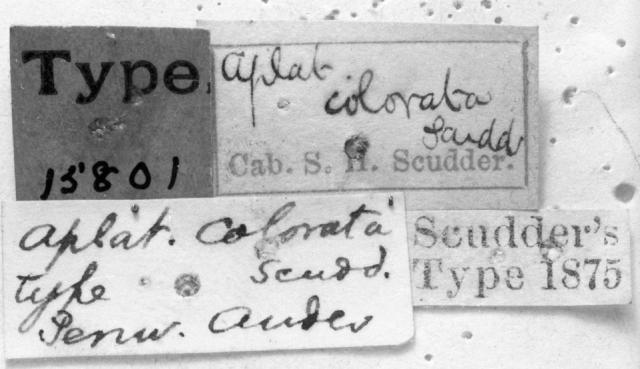 Type.
15801
Aplat
colorata
Scudd
Cab. S. H. Scudder.
Aplat. Colorata
Scudd.
type
Peruv. Andes
Scudder's
Type 1875